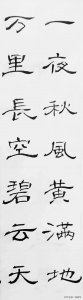 一夜秋風黃滿地
万里長空碧云天